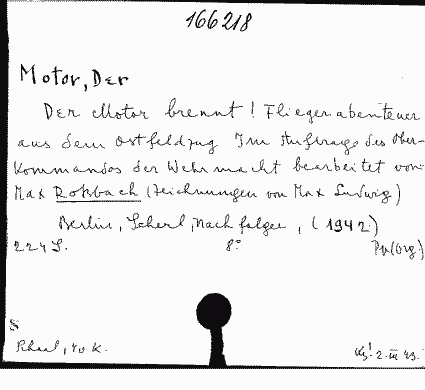 166218
Motor, Der
Der Motor brennt! Fliegerabenteuer
aus dem Ostfeldzug Im Auftrage des Ober-
kommandos der Wehrmacht bearbeitet von
Max Roßbach (Zeichnungen von Max Ludwig)
Berlin, Scherl, Nachfolger, (1942)
224 S. 8°
S
40 K. 2. III 43.